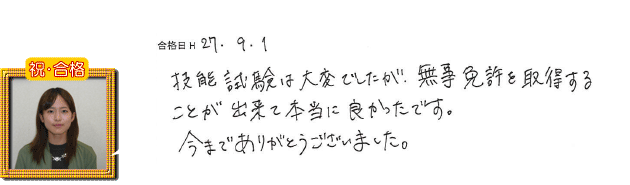 祝・合格
合格日 H 27. 9. 1
技能試験は大変でしたが、無事免許を取得する
ことが出来て本当に良かったです。
今までありがとうございました。